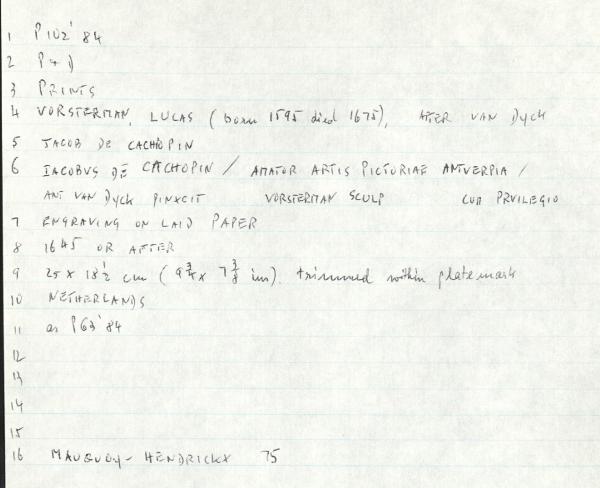 1 P102'84
2 P4)
3 PRINTS
4 VORSTERMAN, LUCAS (born 1595 died 1675), AFTER VAN DYCK
5 JACOB DE CACHOPIN
6 IACOBVS DE CACHOPIN / AMATOR ARTIS PICTORIAE ANTVERPIA /
ANT VAN DYCK PINXCIT VORSTERMAN SCULP CUM PRVILEGIO
7 ENGRAVING ON LAID PAPER
8 1645 OR AFTER
9 25 x 18½ cm (9¾ x 7⅜ ins). trimmed within platemark
10 NETHERLANDS
11 as P63'84
12
13
14
15
16 MAUQUOY-HENDRICKX 75